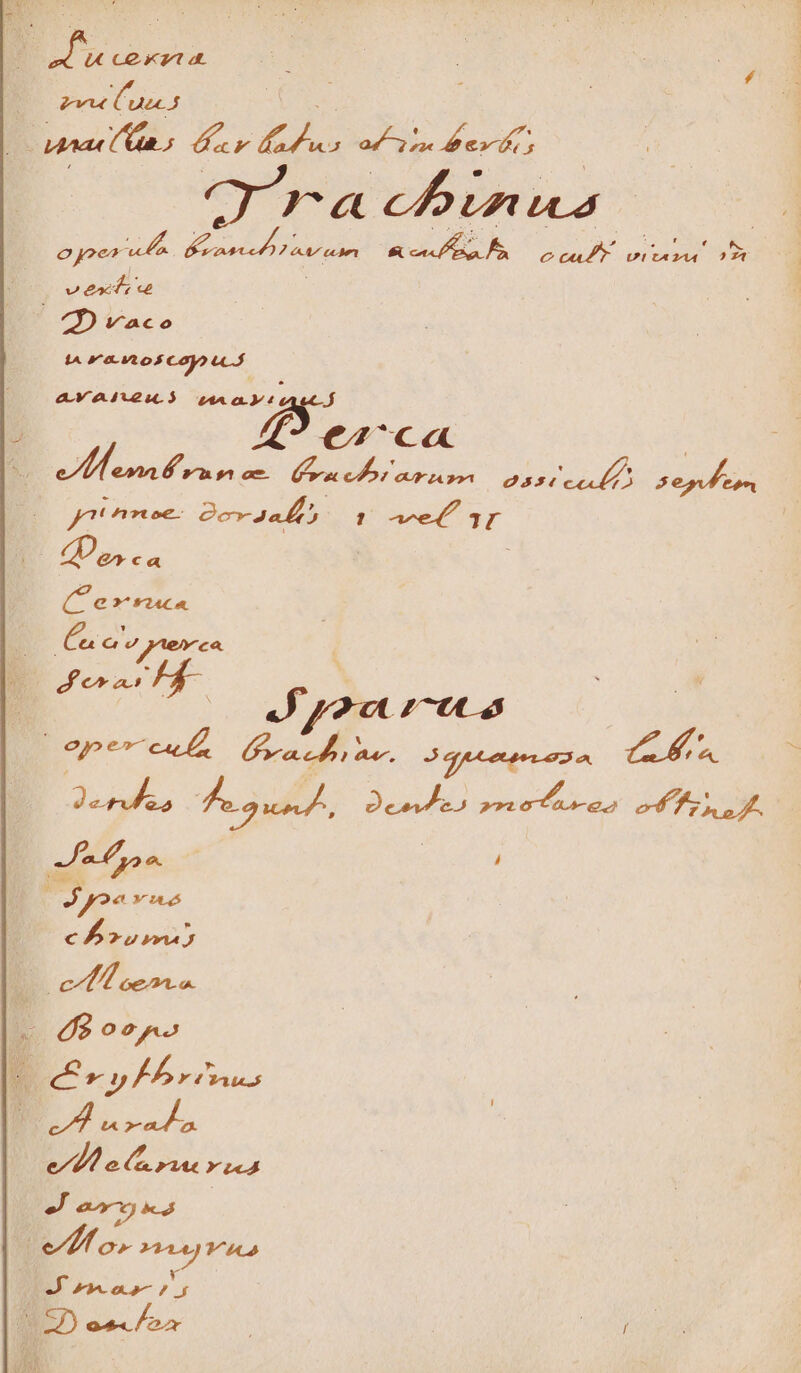 Lucerna
miluus
mullus barbatus et imberbis
Trachinus
opercula branchiarum aculeata oculi vicini in
vertice
Draco
uranoscopus
araneus marinus
Perca
Membranæ brachiarum ossiculis septem
pinnæ dorsalis 1 vel II
Perca
Cernua
lucioperca
Sparus
opercula brachiar. squamosa labia
dentes tegunt, dentes molares obtinet
Salpa
Sparus
chromis
Moena
Boops
Erythrinus
Aurata
Melanurus
Sargus
Mormyrus
Smaris
Dentex